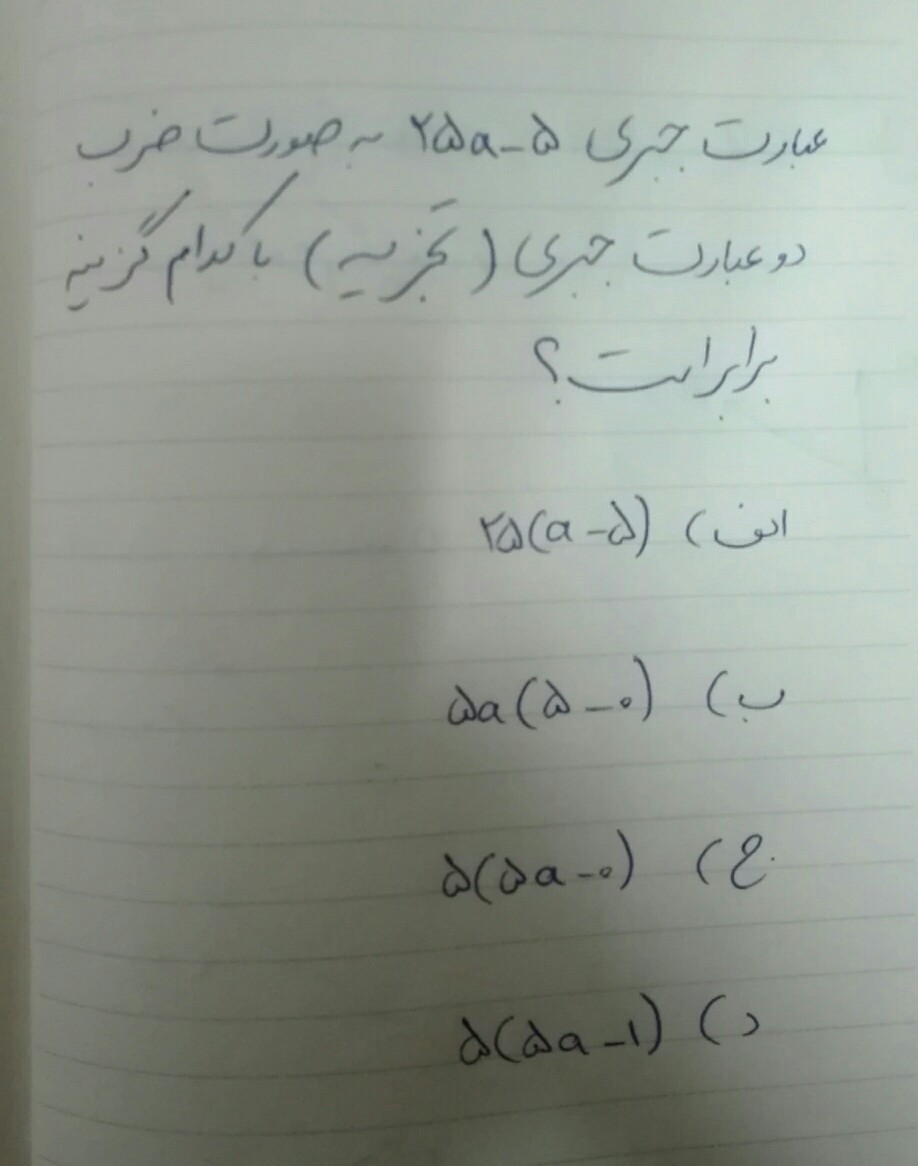 عبارت جبری ۲۵a-۵ به صورت ضرب
دو عبارت جبری (تجزیه) با کدام گزینه
برابر است؟
الف) ۲۵(a-۵)
ب) ۵a(۵-۰)
ج) ۵(۵a-۰)
د) ۵(۵a-۱)